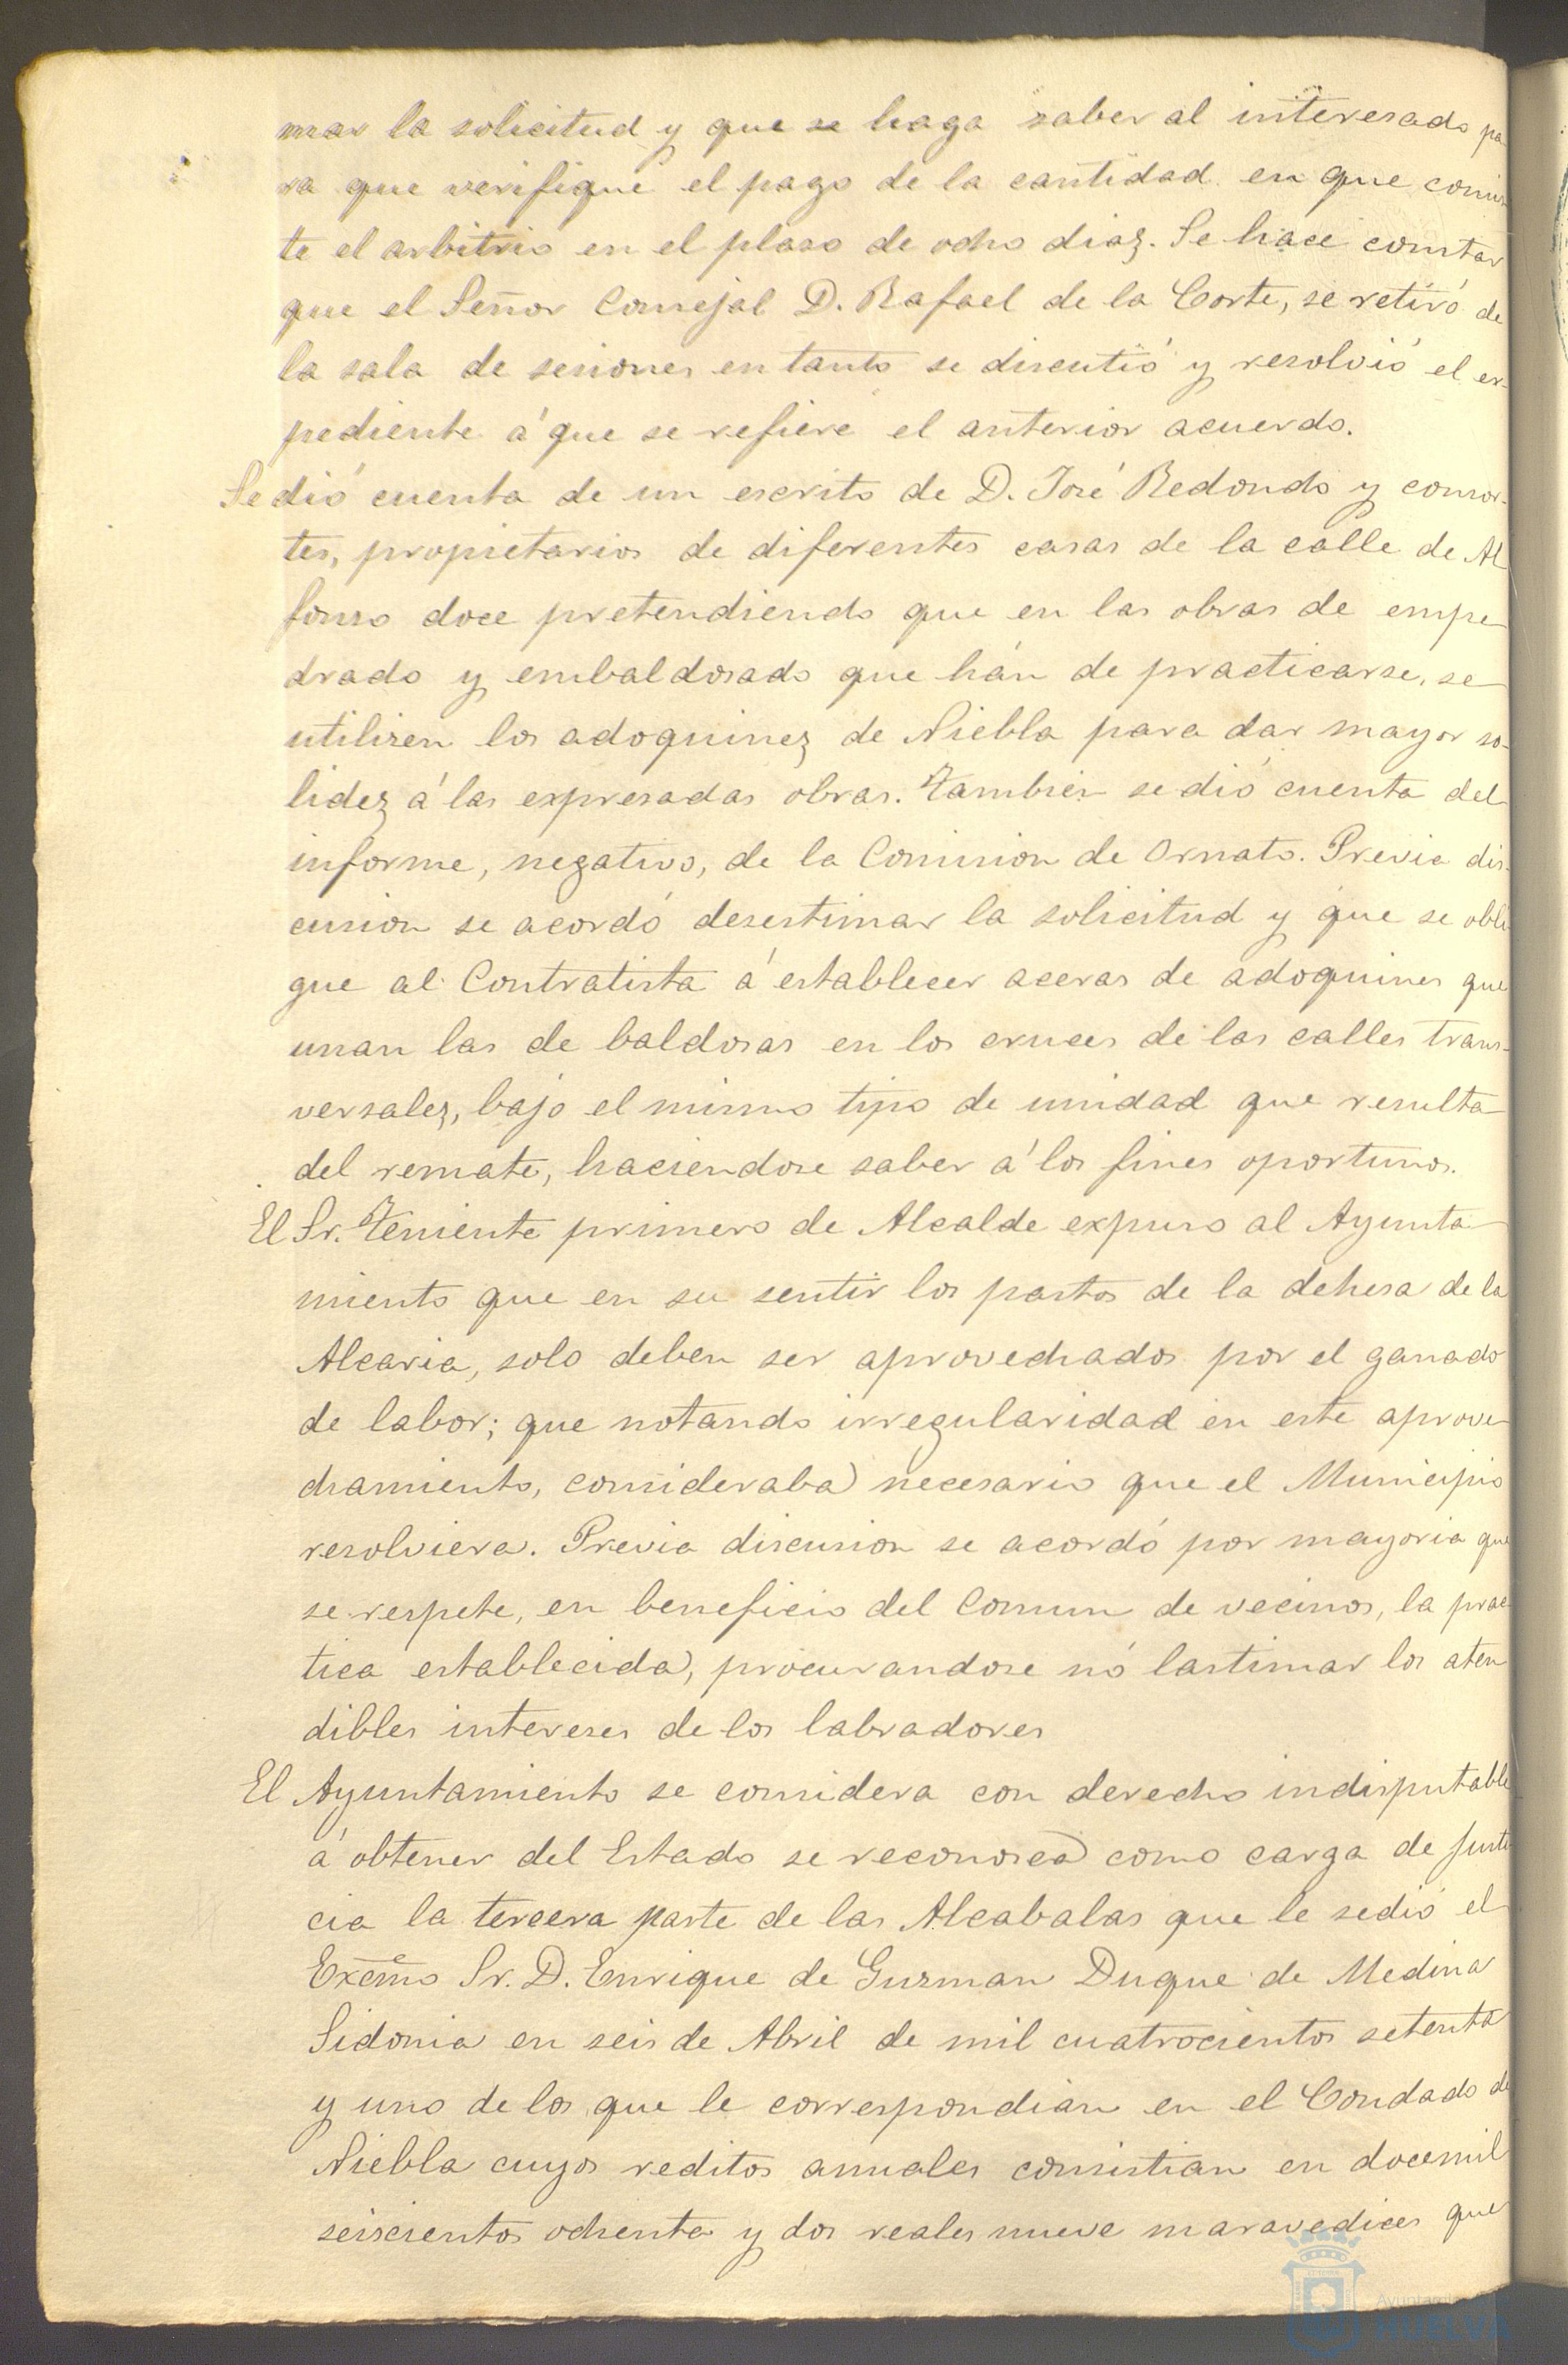 mar la solicitud y que se haga saber al interesado pa
ra que verifique el pago de la cantidad en que consis
te el arbitrio en el plaso de ocho diaz. Se hace constar
que el Señor Consejal D. Rafael de la Corte, se retiró de
la sala de sesiones en tanto se discutió y resolvió el ex-
pediente á que se refiere el anterior acuerdo.
Se dió cuenta de un escrito de D. José Redondo y consor-
tes, propietarios de diferentes casas de la calle de Al
fonso doce pretendiendo que en las obras de empe
drado y embaldosado que hán de practicarse, se
utilisen los adoquinez de Niebla para dar mayor so-
lidez á las expresadas obras. Tambien se dió cuenta del
informe, negativo, de la Comision de Ornato. Previa dis-
cusion se acordó desestimar la solicitud y que se obli
gue al Contratista á establecer aceras de adoquines que
unan las de baldosas en los cruces de las calles trans-
versalez, bajo el mismo tipo de unidad que resulta
del remate, haciendose saber á los fines oportunos.
El Sr. Teniente primero de Alcalde expuso al Ayunta
miento que en su sentir los pastos de la dehesa de la
Alcaria, solo deben ser aprovechados por el ganado
de labor; que notando irregularidad en este aprove
chamiento, consideraba necesario que el Municipio
resolviera. Previa discusion se acordó por mayoria que
se respete, en beneficio del Comun de vecinos, la prac
tica establecida, procurandose nó lastimar los aten
dibles intereses de los labradores
El Ayuntamiento se considera con derecho indisputable
á obtener del Estado se reconosca como carga de justi
cia la tercera parte de las Alcabalas que le sedió el
Excmo Sr. D. Enrique de Gusman Duque de Medina
Sidonia en seis de Abril de mil cuatrocientos setenta
y uno de los que le correspondian en el Condado de
Niebla cuyos reditos anuales consistian en docemil
seiscientos ochenta y dos reales nueve maravedices que
Ayuntamiento
HUELVA